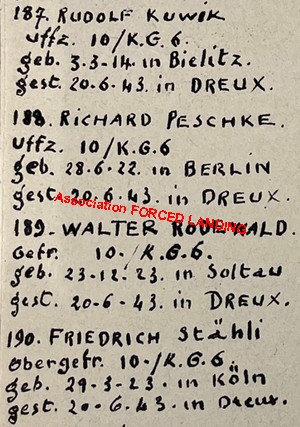 187. RUDOLF KUWIK
Uffz. 10/K.G.6.
geb. 3-3-14. in Bielitz.
gest. 20-6-43. in DREUX.
188. RICHARD PESCHKE.
Uffz. 10/K.G.6
geb. 28-6-22. in BERLIN
gest. 20.6.43. in DREUX.
Association FORCED LANDING
189. WALTER
Gefr. 10-/K.G.6.
geb. 23-12-23. in Soltau
gest. 20-6-43. in DREUX.
190. FRIEDRICH Stähli
Obergefr. 10-/K.G.6.
geb. 29-3-23. in Köln
gest. 20-6.43. in Dreux.